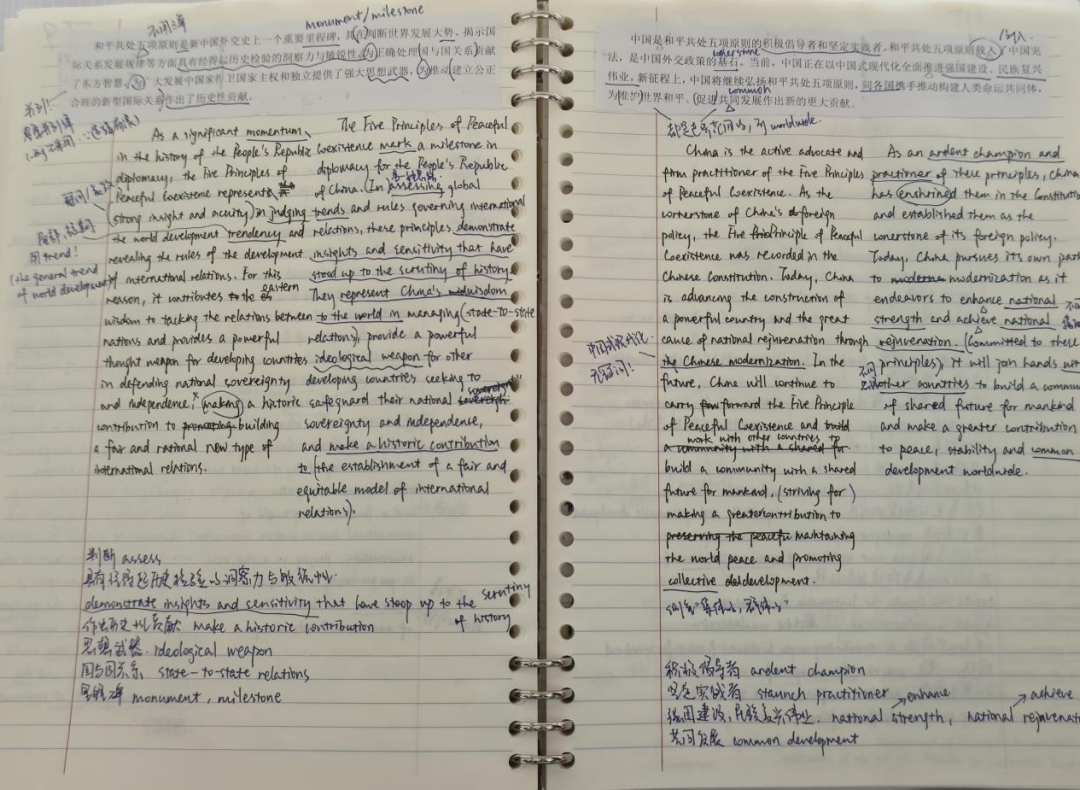 monument/milestone
和平共处五项原则是新中国外交史上一个重要里程碑，其在判断世界发展大势、揭示国
际关系发展规律等方面具有经得起历史检验的洞察力与敏锐性，为正确处理国与国关系贡献
了东方智慧，为广大发展中国家捍卫国家主权和独立提供了强大思想武器，为推动建立公正
合理的新型国际关系作出了历史性贡献。
As a significant momentum
in the history of the People's Republic
diplomacy, the Five Principles of
Peaceful Coexistence represents
strong insight and acuity) in judging
the world development trendency and
revealing the rules of the development
of international relations. For this
reason, it contributes to the eastern
wisdom to tacking the relations between
nations and provides a powerful
thought weapon for developing countries
in defending national sovereignty
and independence, making a historic
contribution to promoting building
a fair and rational new type of
international relations.
同 trend!
(the general trend
of world development)
The Five Principles of Peaceful
Coexistence mark a milestone in
diplomacy for the People's Republic
of China. (In assessing global
trends and rules governing international
relations, these principles demonstrate
insights and sensitivity that have
stood up to the scrutiny of history.
They represent China's wisdom
to the world in managing (state-to-state
relations), provide a powerful
ideological weapon for other
developing countries seeking to
safeguard their national sovereign
sovereignty and independence,
and make a historic contribution
to (the establishment of a fair and
equitable model of international
relations).
判断 assess
具有经得起历史检验的洞察力与敏锐性.
demonstrate insights and sensitivity that have stoop up to the scrutiny
of history
作出历史性贡献 make a historic contribution
思想武器. ideological weapon
国与国关系. state-to-state relations
里程碑 monument, milestone
中国是和平共处五项原则的积极倡导者和坚定实践者。和平共处五项原则载入了中国宪
法，是中国外交政策的基石。当前，中国正在以中国式现代化全面推进强国建设、民族复兴
伟业。新征程上，中国将继续弘扬和平共处五项原则，同各国携手推动构建人类命运共同体，
为维护世界和平、促进共同发展作出新的更大贡献。
common
China is the active advocate and
firm practitioner of the Five Principles
of Peaceful Coexistence. As the
cornerstone of China's foreign
policy, the Five Principle of Peaceful
Coexistence was recorded in the
Chinese Constitution. Today, China
is advancing the construction of
a powerful country and the great
cause of national rejuvenation through
the Chinese modernization. In the
future, China will continue to
carry forward the Five Principle
of Peaceful Coexistence and build
work with other countries to
a community with a shared for
build a community with a shared
future for mankind, (striving for)
making a greater contribution to
preserving the peaceful maintaining
the world peace and promoting
collective development.
As an ardent champion and
practioner of these principles, China
has enshrined them in the Constitution
and established them as the
conerstone of its foreign policy.
Today, China pursues its own path
to modernization as it
endeavors to enhance national
strength and achieve national
rejuvenation. (Committed to these
principles), it will join hands with
other countries to build a commu
of shared future for mankind
and make a greater contribution
to peace, stability and common
development worldwide.
积极倡导者 ardent champion
坚定实践者 staunch practitioner
enhance
achieve
强国建设, 民族复兴伟业. national strength, national rejuvenat
共同发展 common development